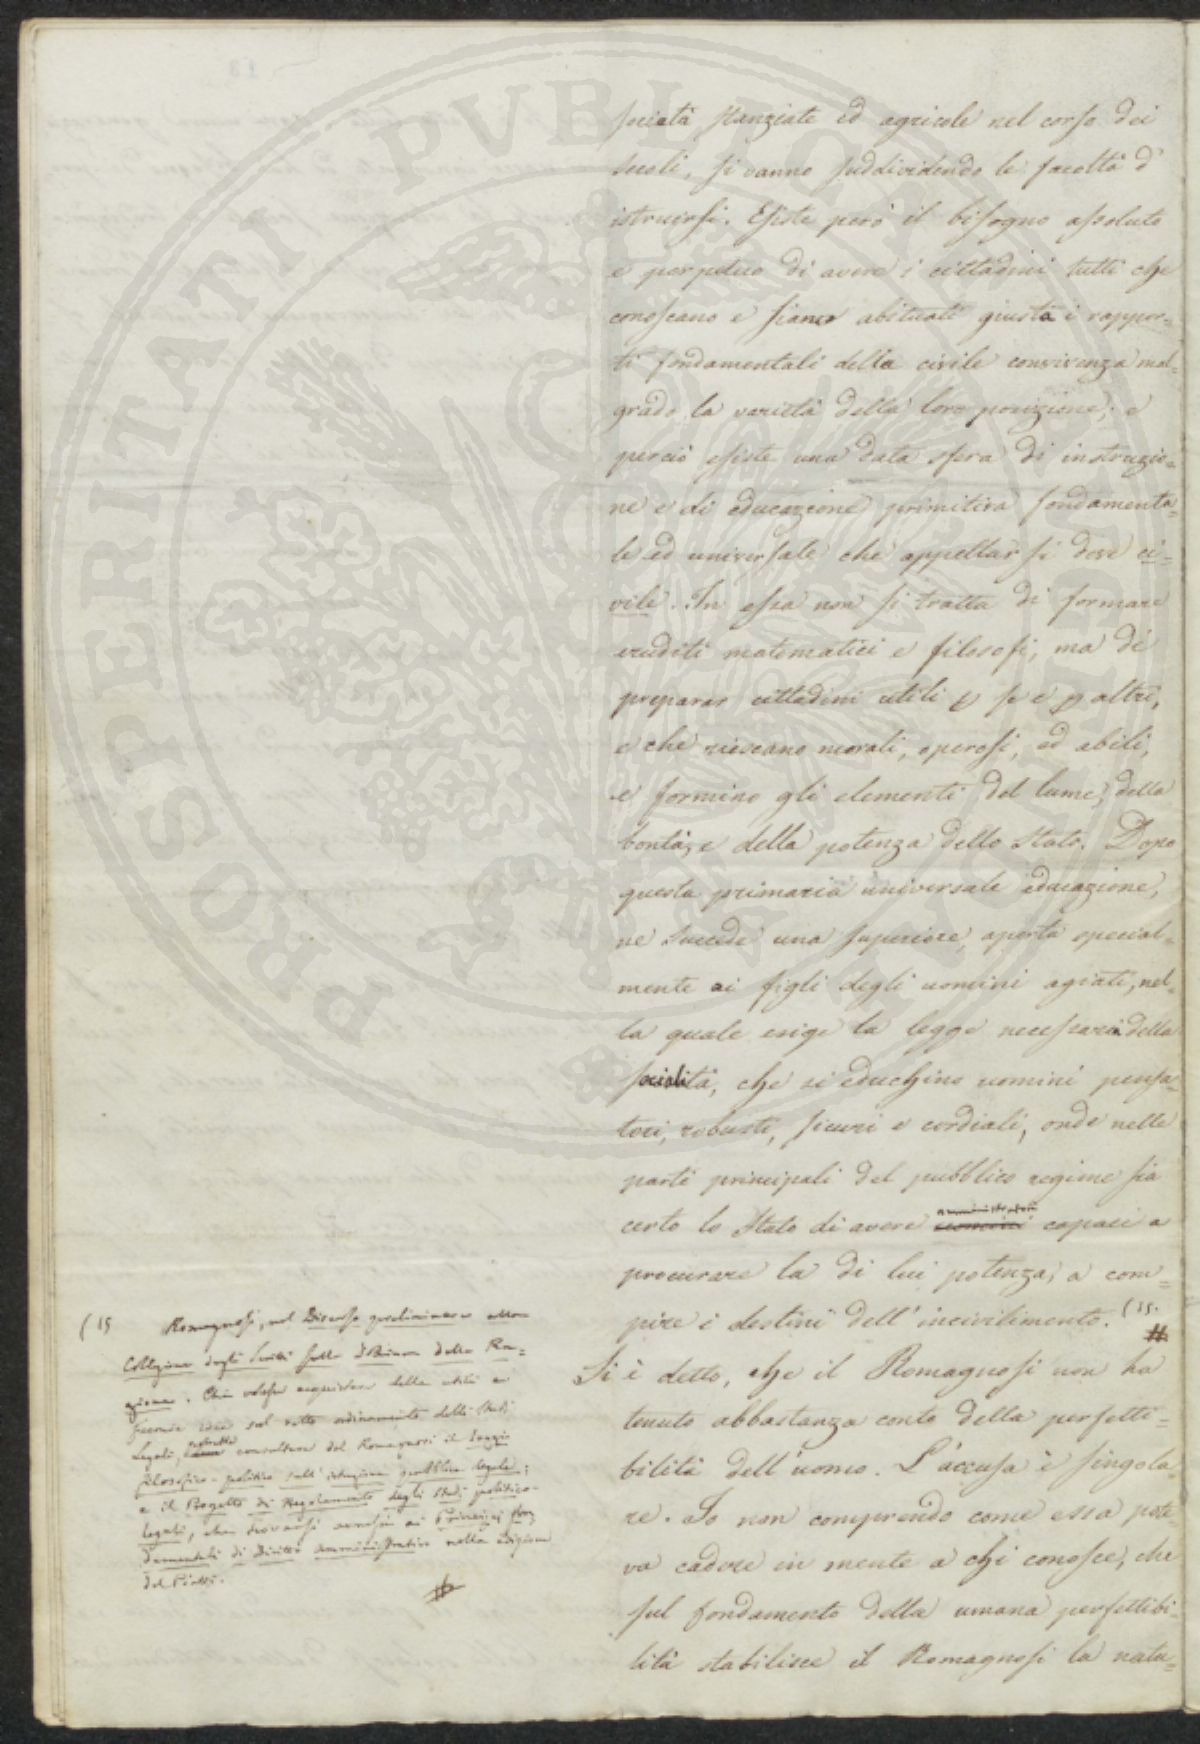 società stanziate ed agricole nel corso dei
secoli, si vanno suddividendo le facoltà d'
istruirsi. Esiste però il bisogno assoluto
e perpetuo di avere i cittadini tutti che
conoscano e siano abituati giusta i rappor=
ti fondamentali della civile convivenza mal=
grado la varietà della loro posizione; e
perciò esiste una data sfera di instruzio=
ne e di educazione primitiva fondamenta=
le ed universale che appellar si deve ci=
vile. In essa non si tratta di formare
eruditi matematici e filosofi, ma di
preparar cittadini utili p se e p altri,
e che riescano morali, operosi, ed abili,
e formino gli elementi del lume, della
bontà, e della potenza dello Stato. Dopo
questa primaria universale educazione,
ne succede una superiore, aperta special=
mente ai figli degli uomini agiati, nel=
la quale esige la legge necessaria della
socialità, che si educhino uomini pensa=
tori, robusti, sicuri e cordiali, onde nelle
parti principali del pubblico regime sia
amministratori
certo lo Stato di avere uomini capaci a
procurare la di lui potenza, a com=
pire i destini dell'incivilimento. (15.
#
Si è detto, che il Romagnosi non ha
tenuto abbastanza conto della perfetti=
bilità dell'uomo. L'accusa è singola=
re. Io non comprendo come essa pote
va cadere in mente a chi conosce, che
sul fondamento della umana perfettibi=
lità stabilisce il Romagnosi la natu=
(15 Romagnosi, nel Discorso preliminare alla
Collezione degli Scritti sulla Dottrina della Ra=
gione. Chi volesse acquistare delle utili e
feconde idee sul retto ordinamento delli Studi
Legali, potrebbe consultare del Romagnosi il Saggio
filosofico-politico sull'istruzione pubblica legale;
e il Progetto di Regolamento degli studi politico-
legali, che trovansi annessi ai Principj fon
damentali di Diritto Amministrativo nella edizione
del Piatti.
#